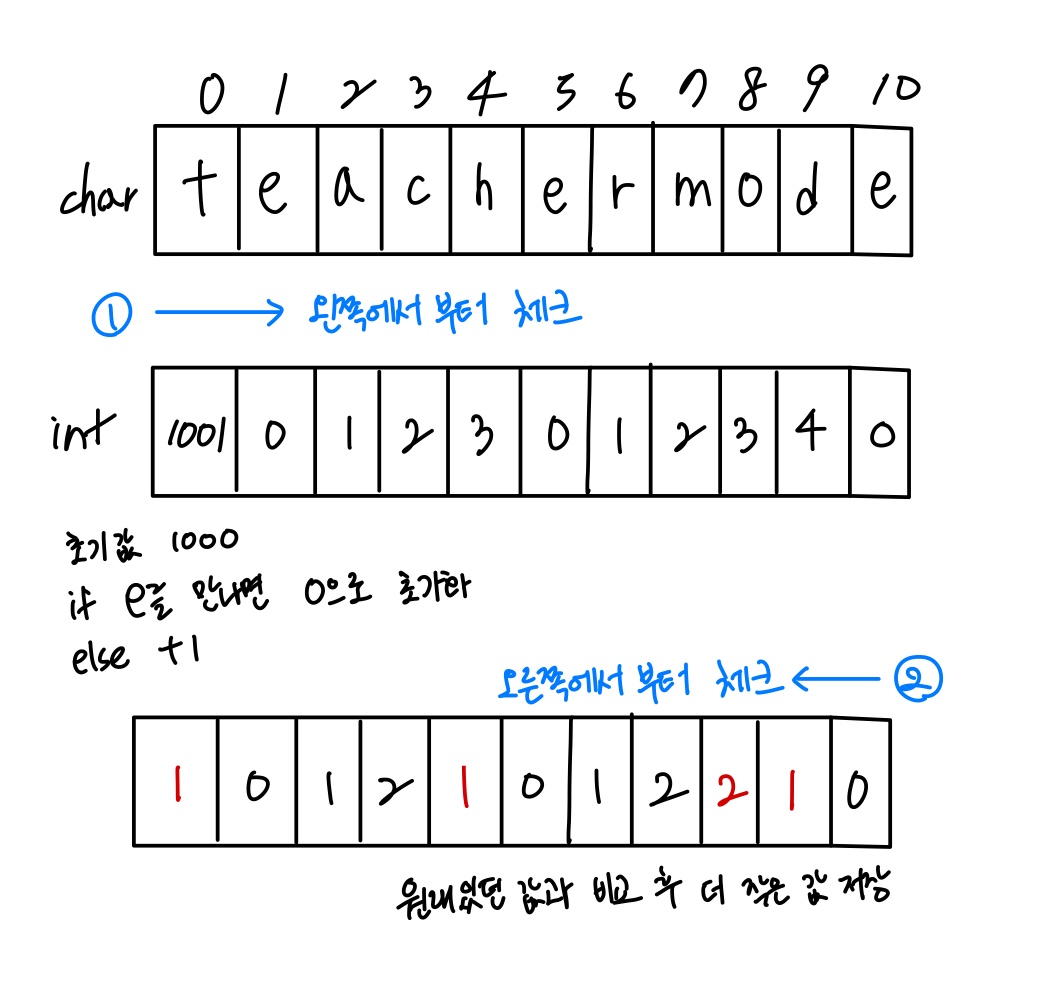 0 1 2 3 4 5 6 7 8 9 10
char t e a c h e r m o d e
① → 왼쪽에서 부터 체크
int 1001 0 1 2 3 0 1 2 3 4 0
초기값 1000
if e를 만나면 0으로 초기화
else +1
오른쪽에서 부터 체크 ← ②
1 0 1 2 1 0 1 2 2 1 0
원래있던 값과 비교 후 더 작은 값 저장